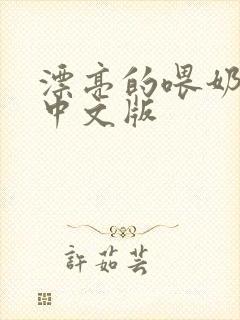 漂亮的喂奶
中文版
許茹芸